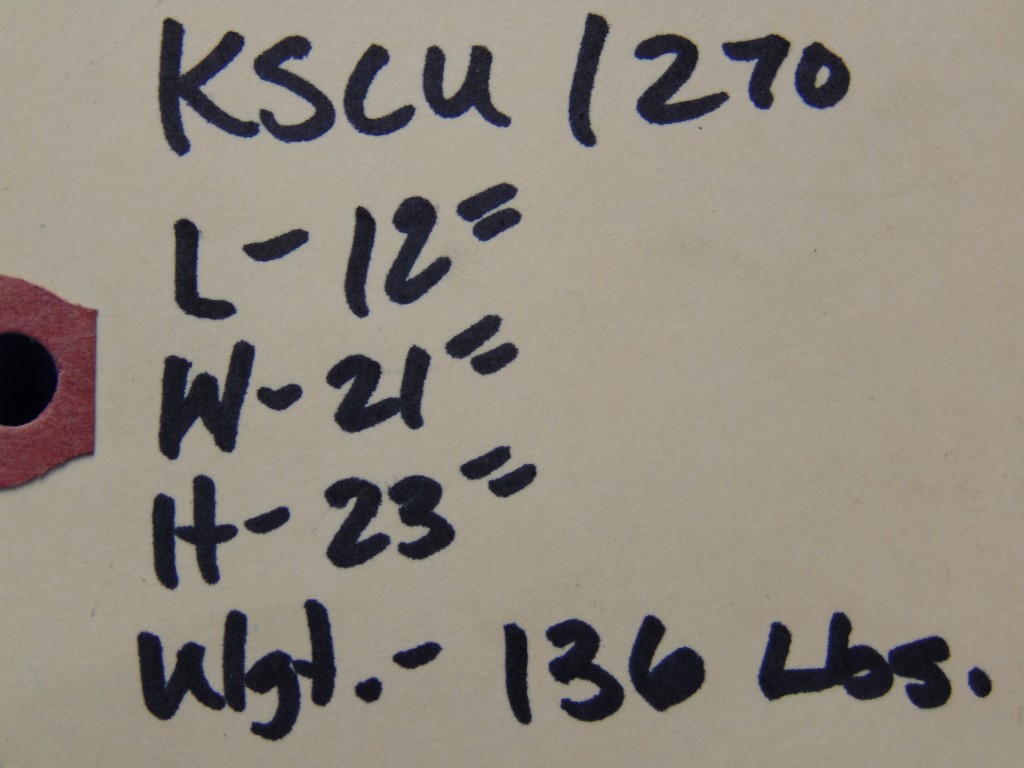 KSCU 1270
L - 12"
W - 21"
H - 23"
Wgt. - 136 Lbs.